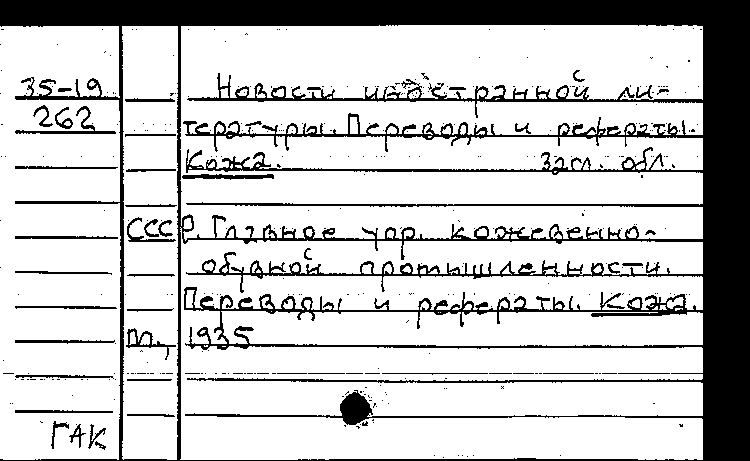 35-19
262
Новости иностранной ли-
тературы. Переводы и рефераты.
Кожа. Загл. обл.
СССР. Главное упр. кожевенно-
обувной промышленности.
Переводы и рефераты. Кожа.
М., 1935
ГАК